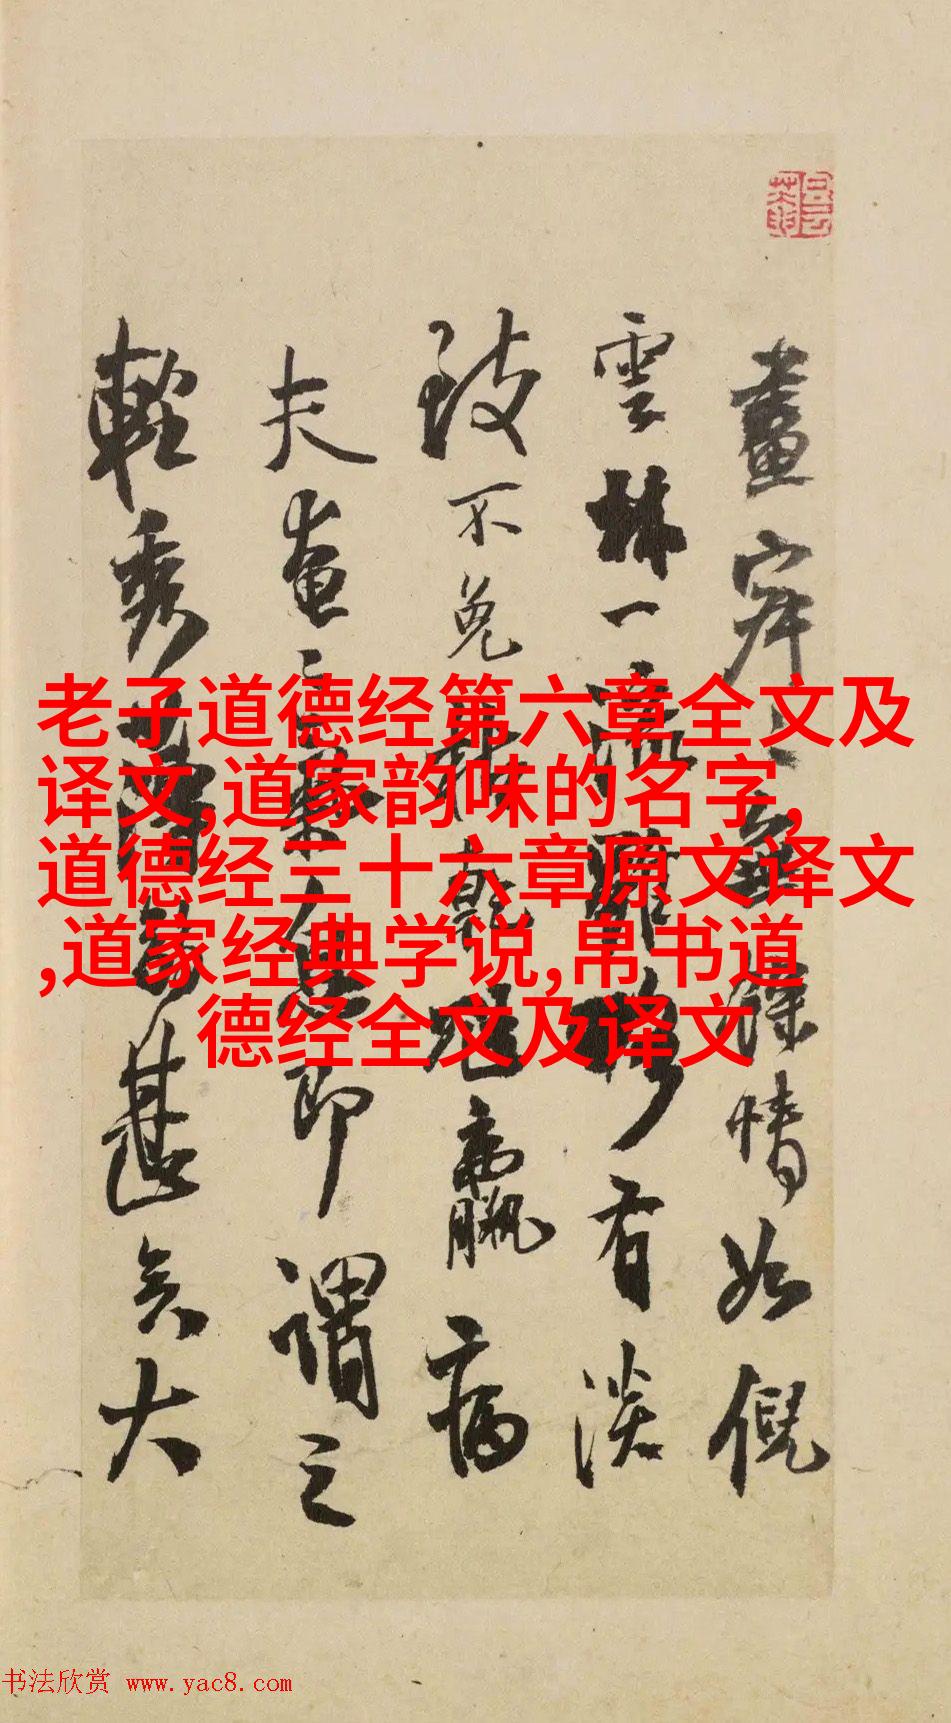 畫之無餘情如倪
雲林一派雖有淡
致不免枯乾尫羸病
夫畫之即謂之
輕秀薄弱甚矣大
老子道德经第六章全文及
译文,道家韵味的名字,
道德经三十六章原文译文
,道家经典学说,帛书道
德经全文及译文
书法欣赏 www.yac8.com